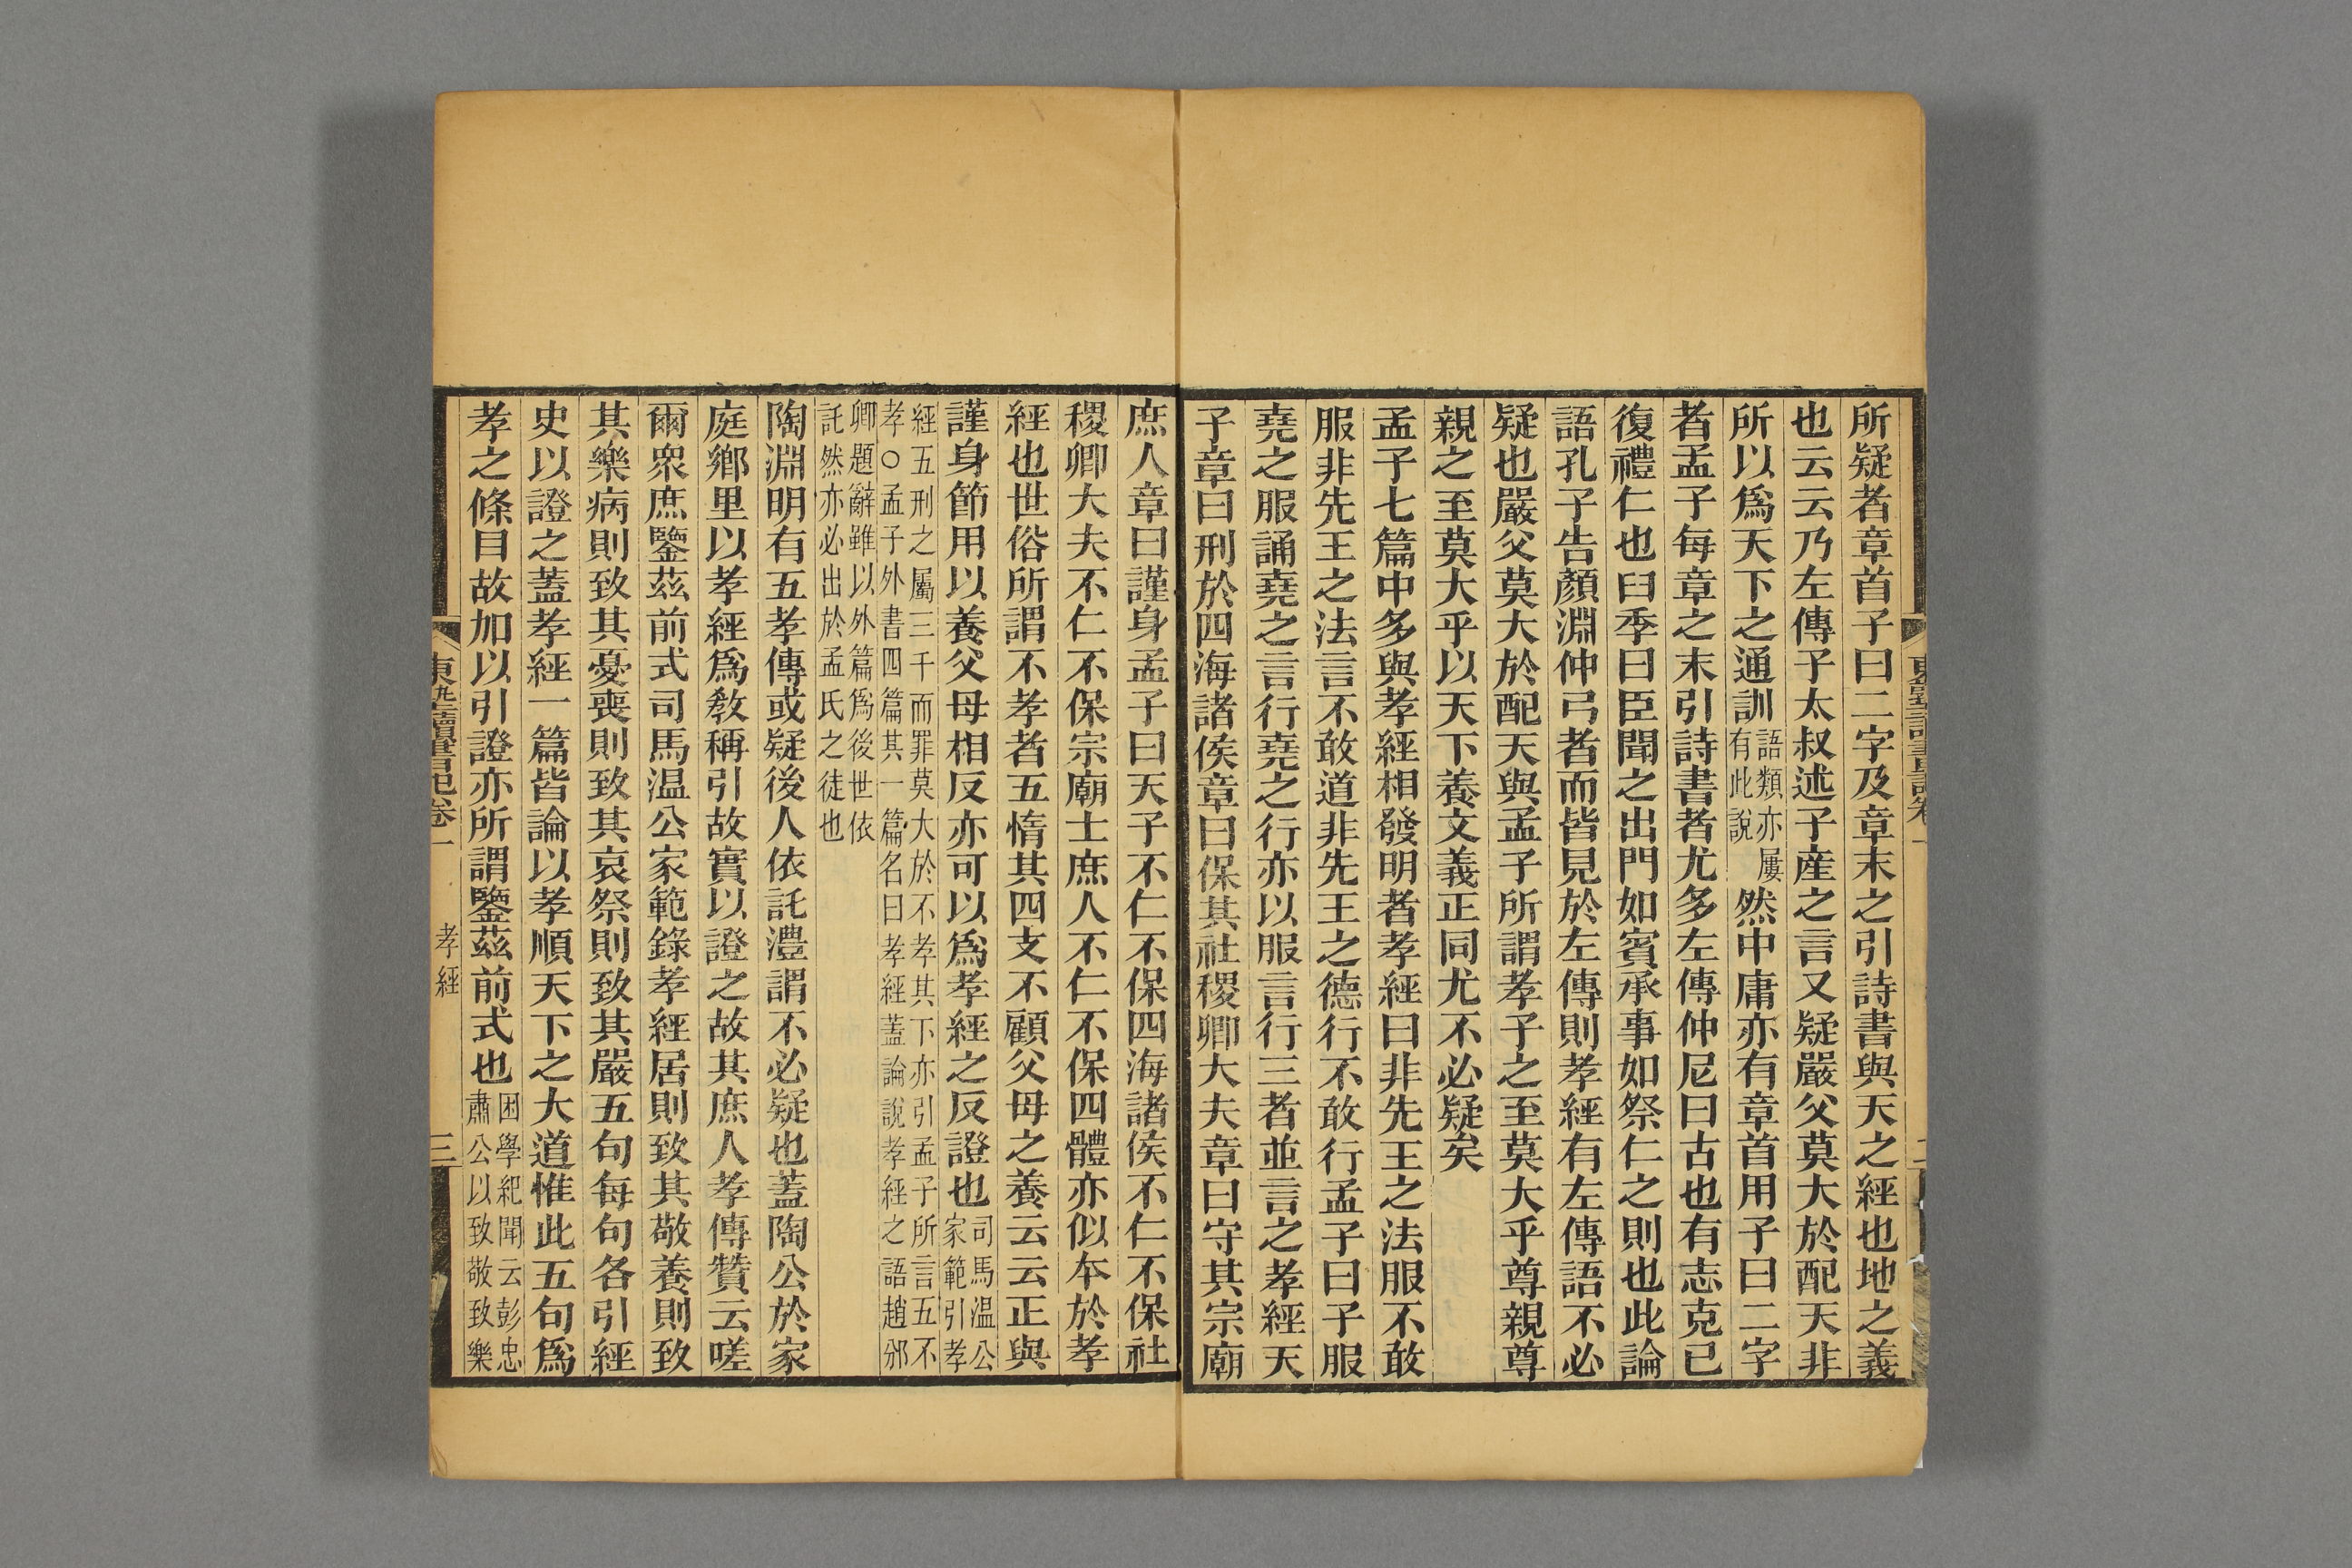 所疑者章首子曰二字及章末之引詩書與天之經也地之義
也云云乃左傳子太叔述子產之言又疑嚴父莫大於配天非
所以爲天下之通訓語類亦屢有此說然中庸亦有章首用子曰二字
者孟子每章之末引詩書者尤多左傳仲尼曰古也有志克己
復禮仁也臼季曰臣聞之出門如賓承事如祭仁之則也此論
語孔子告顏淵仲弓者而皆見於左傳則孝經有左傳語不必
疑也嚴父莫大於配天與孟子所謂孝子之至莫大乎尊親尊
親之至莫大乎以天下養文義正同尤不必疑矣
孟子七篇中多與孝經相發明者孝經曰非先王之法服不敢
服非先王之法言不敢道非先王之德行不敢行孟子曰子服
堯之服誦堯之言行堯之行亦以服言行三者並言之孝經天
子章曰刑於四海諸侯章曰保其社稷卿大夫章曰守其宗廟
庶人章曰謹身孟子曰天子不仁不保四海諸侯不仁不保社
稷卿大夫不仁不保宗廟士庶人不仁不保四體亦似本於孝
經也世俗所謂不孝者五惰其四支不顧父母之養云云正與
謹身節用以養父母相反亦可以爲孝經之反證也司馬温公家範引孝
經五刑之屬三千而罪莫大於不孝其下亦引孟子所言五不
孝○孟子外書四篇其一篇名曰孝經蓋論說孝經之語趙邠
卿題辭雖以外篇爲後世依
託然亦必出於孟氏之徒也
陶淵明有五孝傳或疑後人依託澧謂不必疑也蓋陶公於家
庭鄉里以孝經爲敎稱引故實以證之故其庶人孝傳贊云嗟
爾衆庶鑒茲前式司馬温公家範錄孝經居則致其敬養則致
其樂病則致其憂喪則致其哀祭則致其嚴五句每句各引經
史以證之蓋孝經一篇皆論以孝順天下之大道惟此五句爲
孝之條目故加以引證亦所謂鑒茲前式也困學紀聞云彭忠肅公以致敬致樂
東塾讀書記卷一
孝經
三